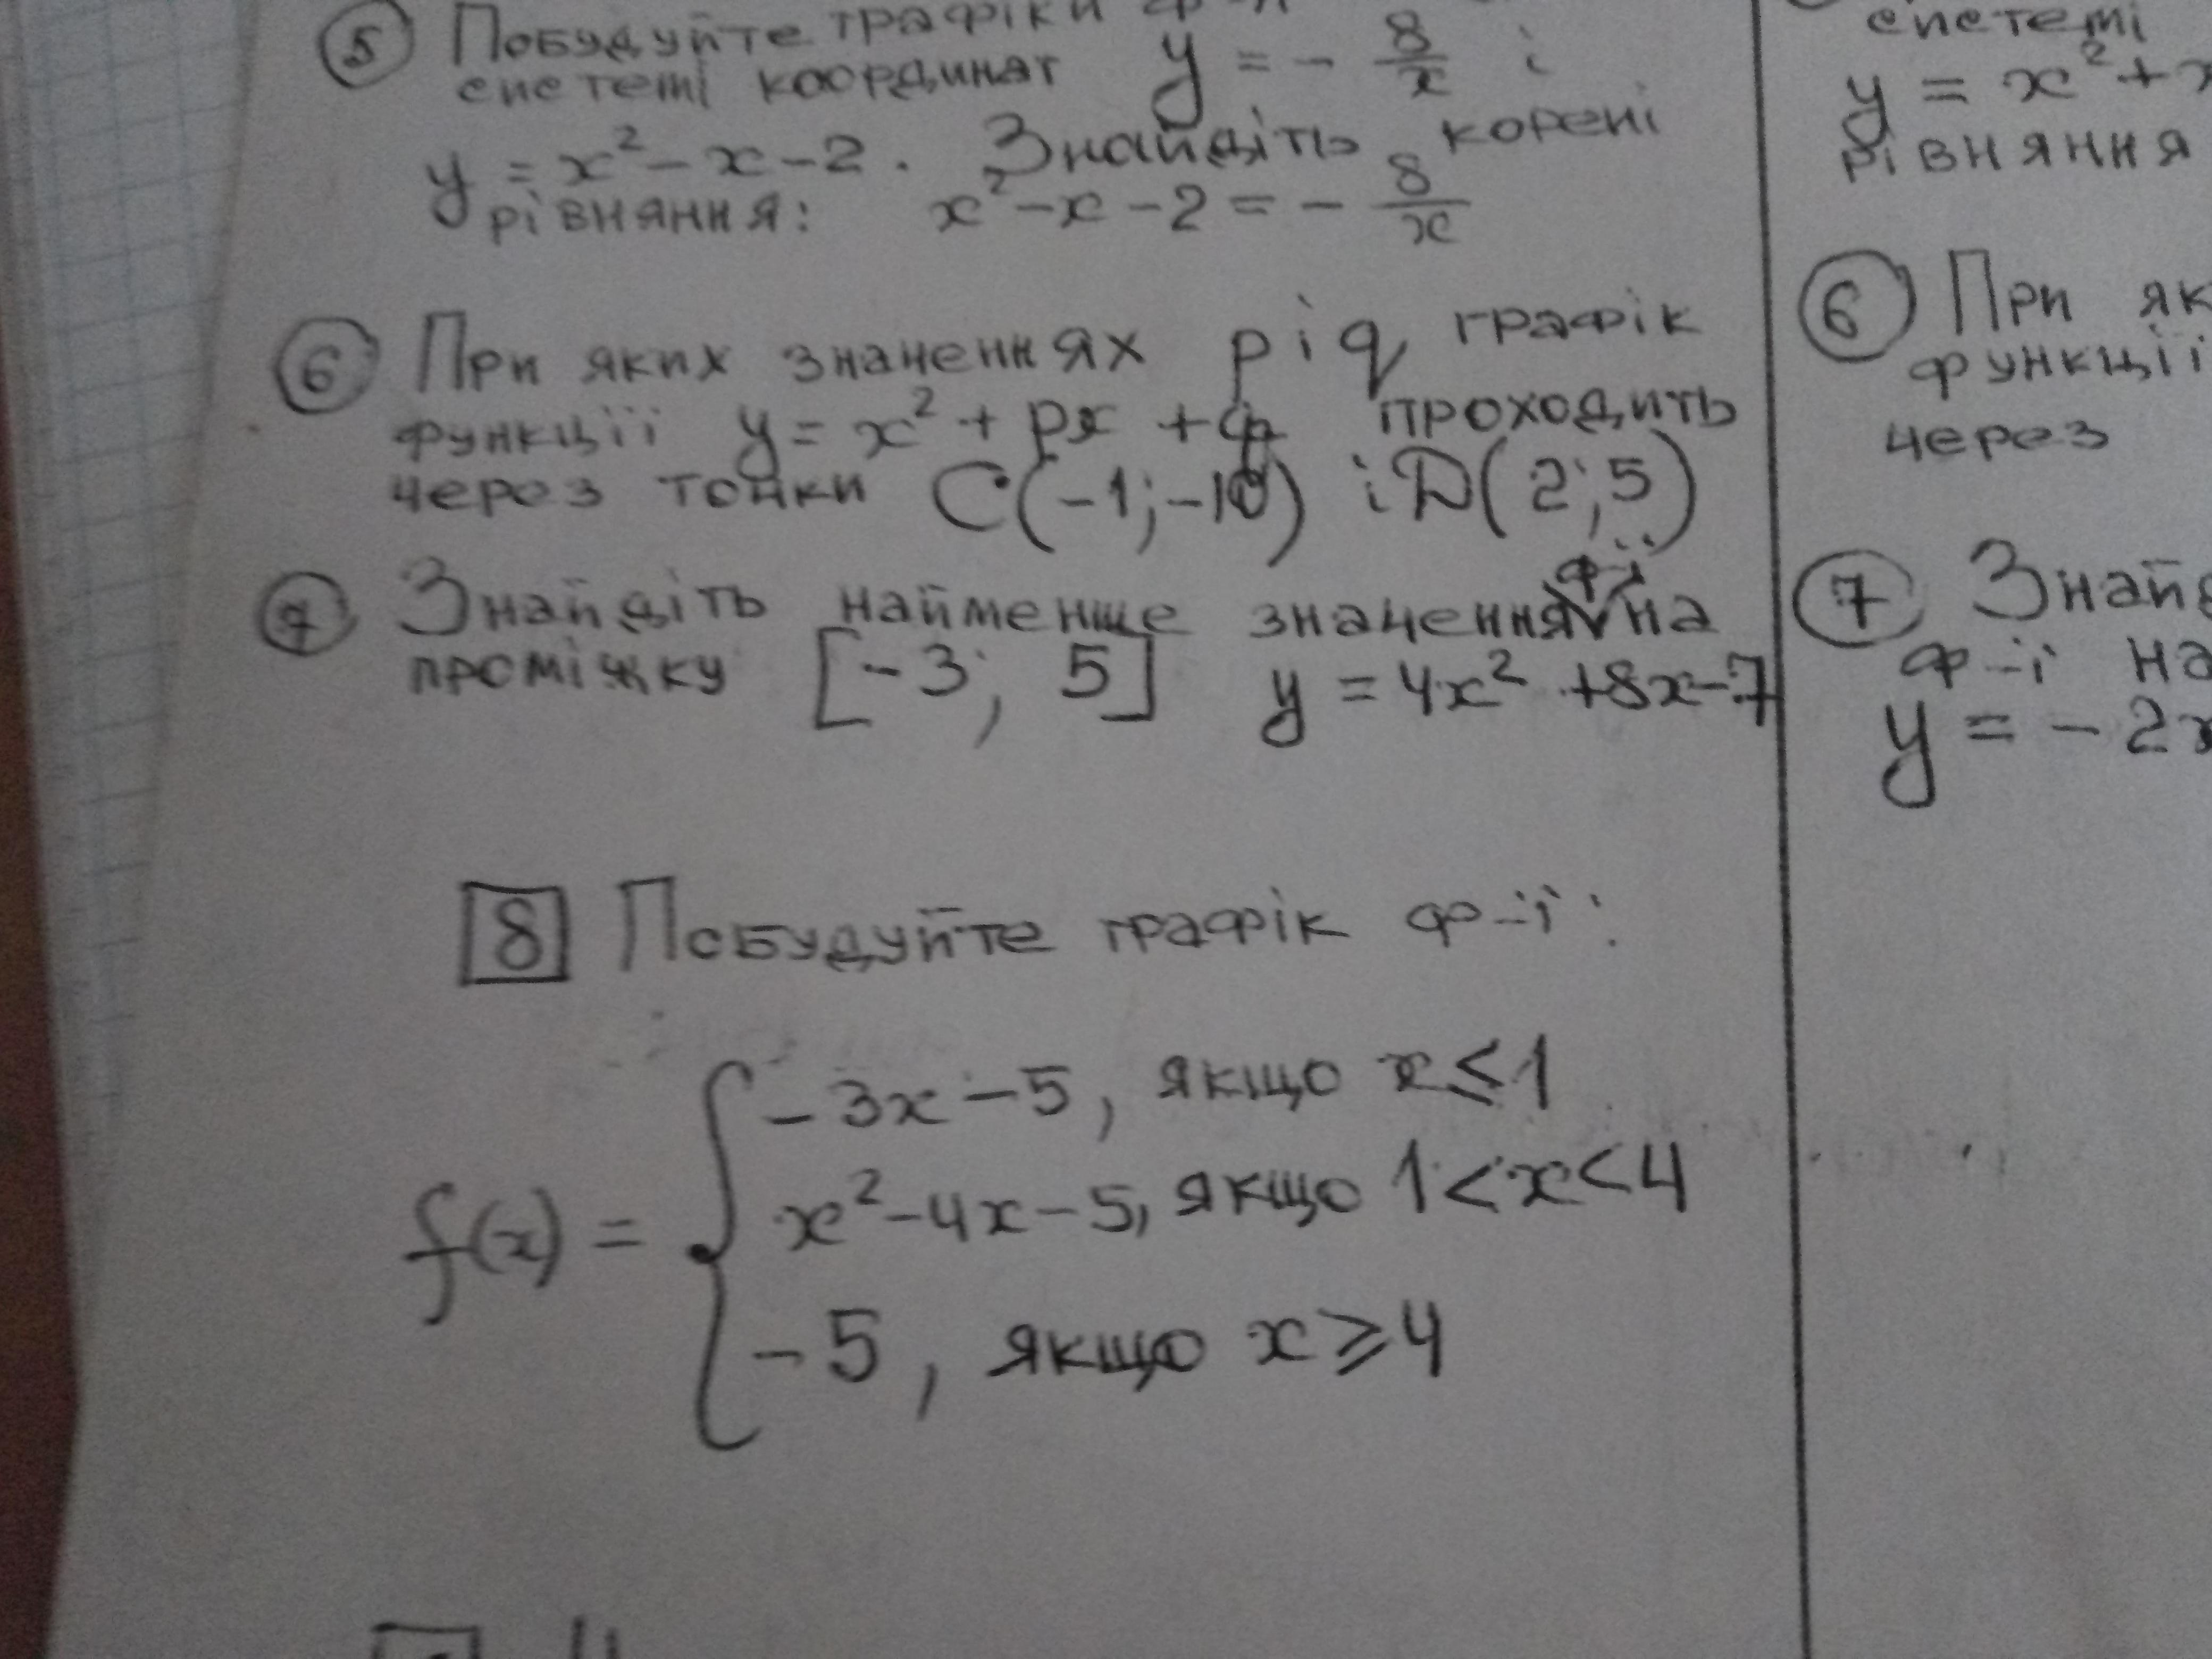 5 Побудуйте графіки
системі координат y = - 8/x і
y = x² - x - 2. Знайдіть корені
рівняння: x² - x - 2 = - 8/x
6 При яких значеннях p і q графік
функціїї y = x² + px + q проходить
через точки C(-1; -10) і D(2; 5)
7 Знайдіть найменше значення ф-ї на
проміжку [-3; 5] y = 4x² + 8x - 7
8 Побудуйте графік ф-ї:
f(x) = { -3x - 5, якщо x ≤ 1
x² - 4x - 5, якщо 1 < x < 4
-5, якщо x ≥ 4
системі
y = x² +
рівняння
6 При як
функції
через
7 Знайд
ф-ї на
y = - 2x